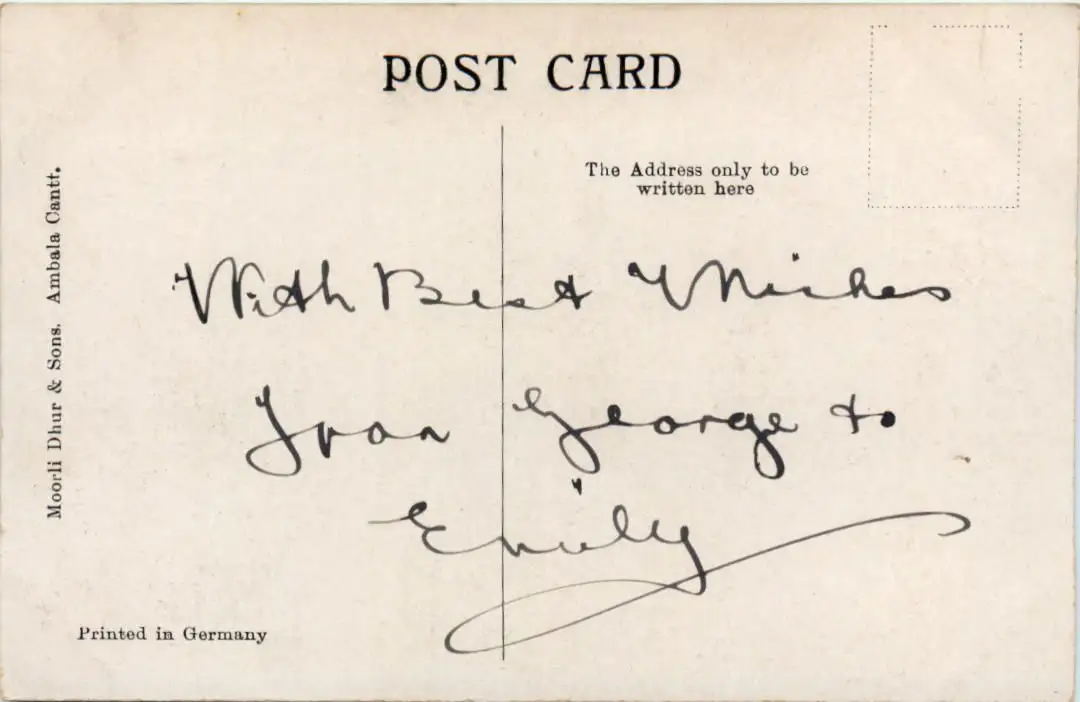 POST CARD
The Address only to be
written here
Moorli Dhur & Sons. Ambala Cantt.
With Best Wishes
from George to
Emily
Printed in Germany